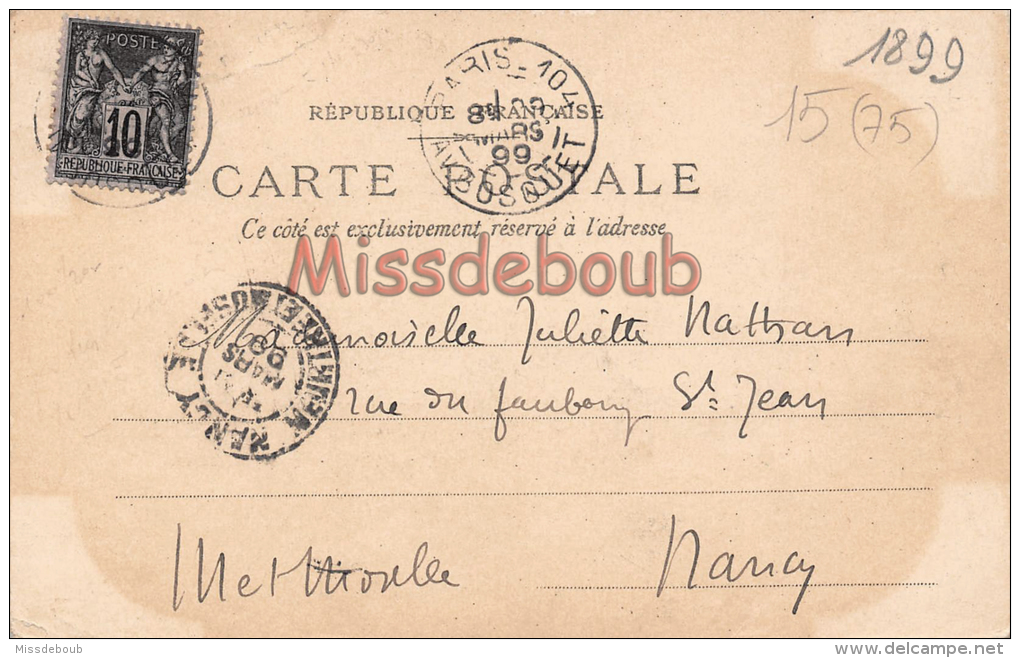 POSTE
10
RÉPUBLIQUE FRANÇAISE
PARIS_104
MARS
99
AV. BOSQUET
1899
15 (75)
RÉPUBLIQUE FRANÇAISE
CARTE POSTALE
Ce côté est exclusivement réservé à l'adresse
Missdeboub
Mademoiselle Juliette Nathan
rue du faubourg St Jean
NANCY
MARS
99
MEURTHE-ET-MOSELLE
Nancy
Met Moselle
Missdeboub
www.delcampe.net